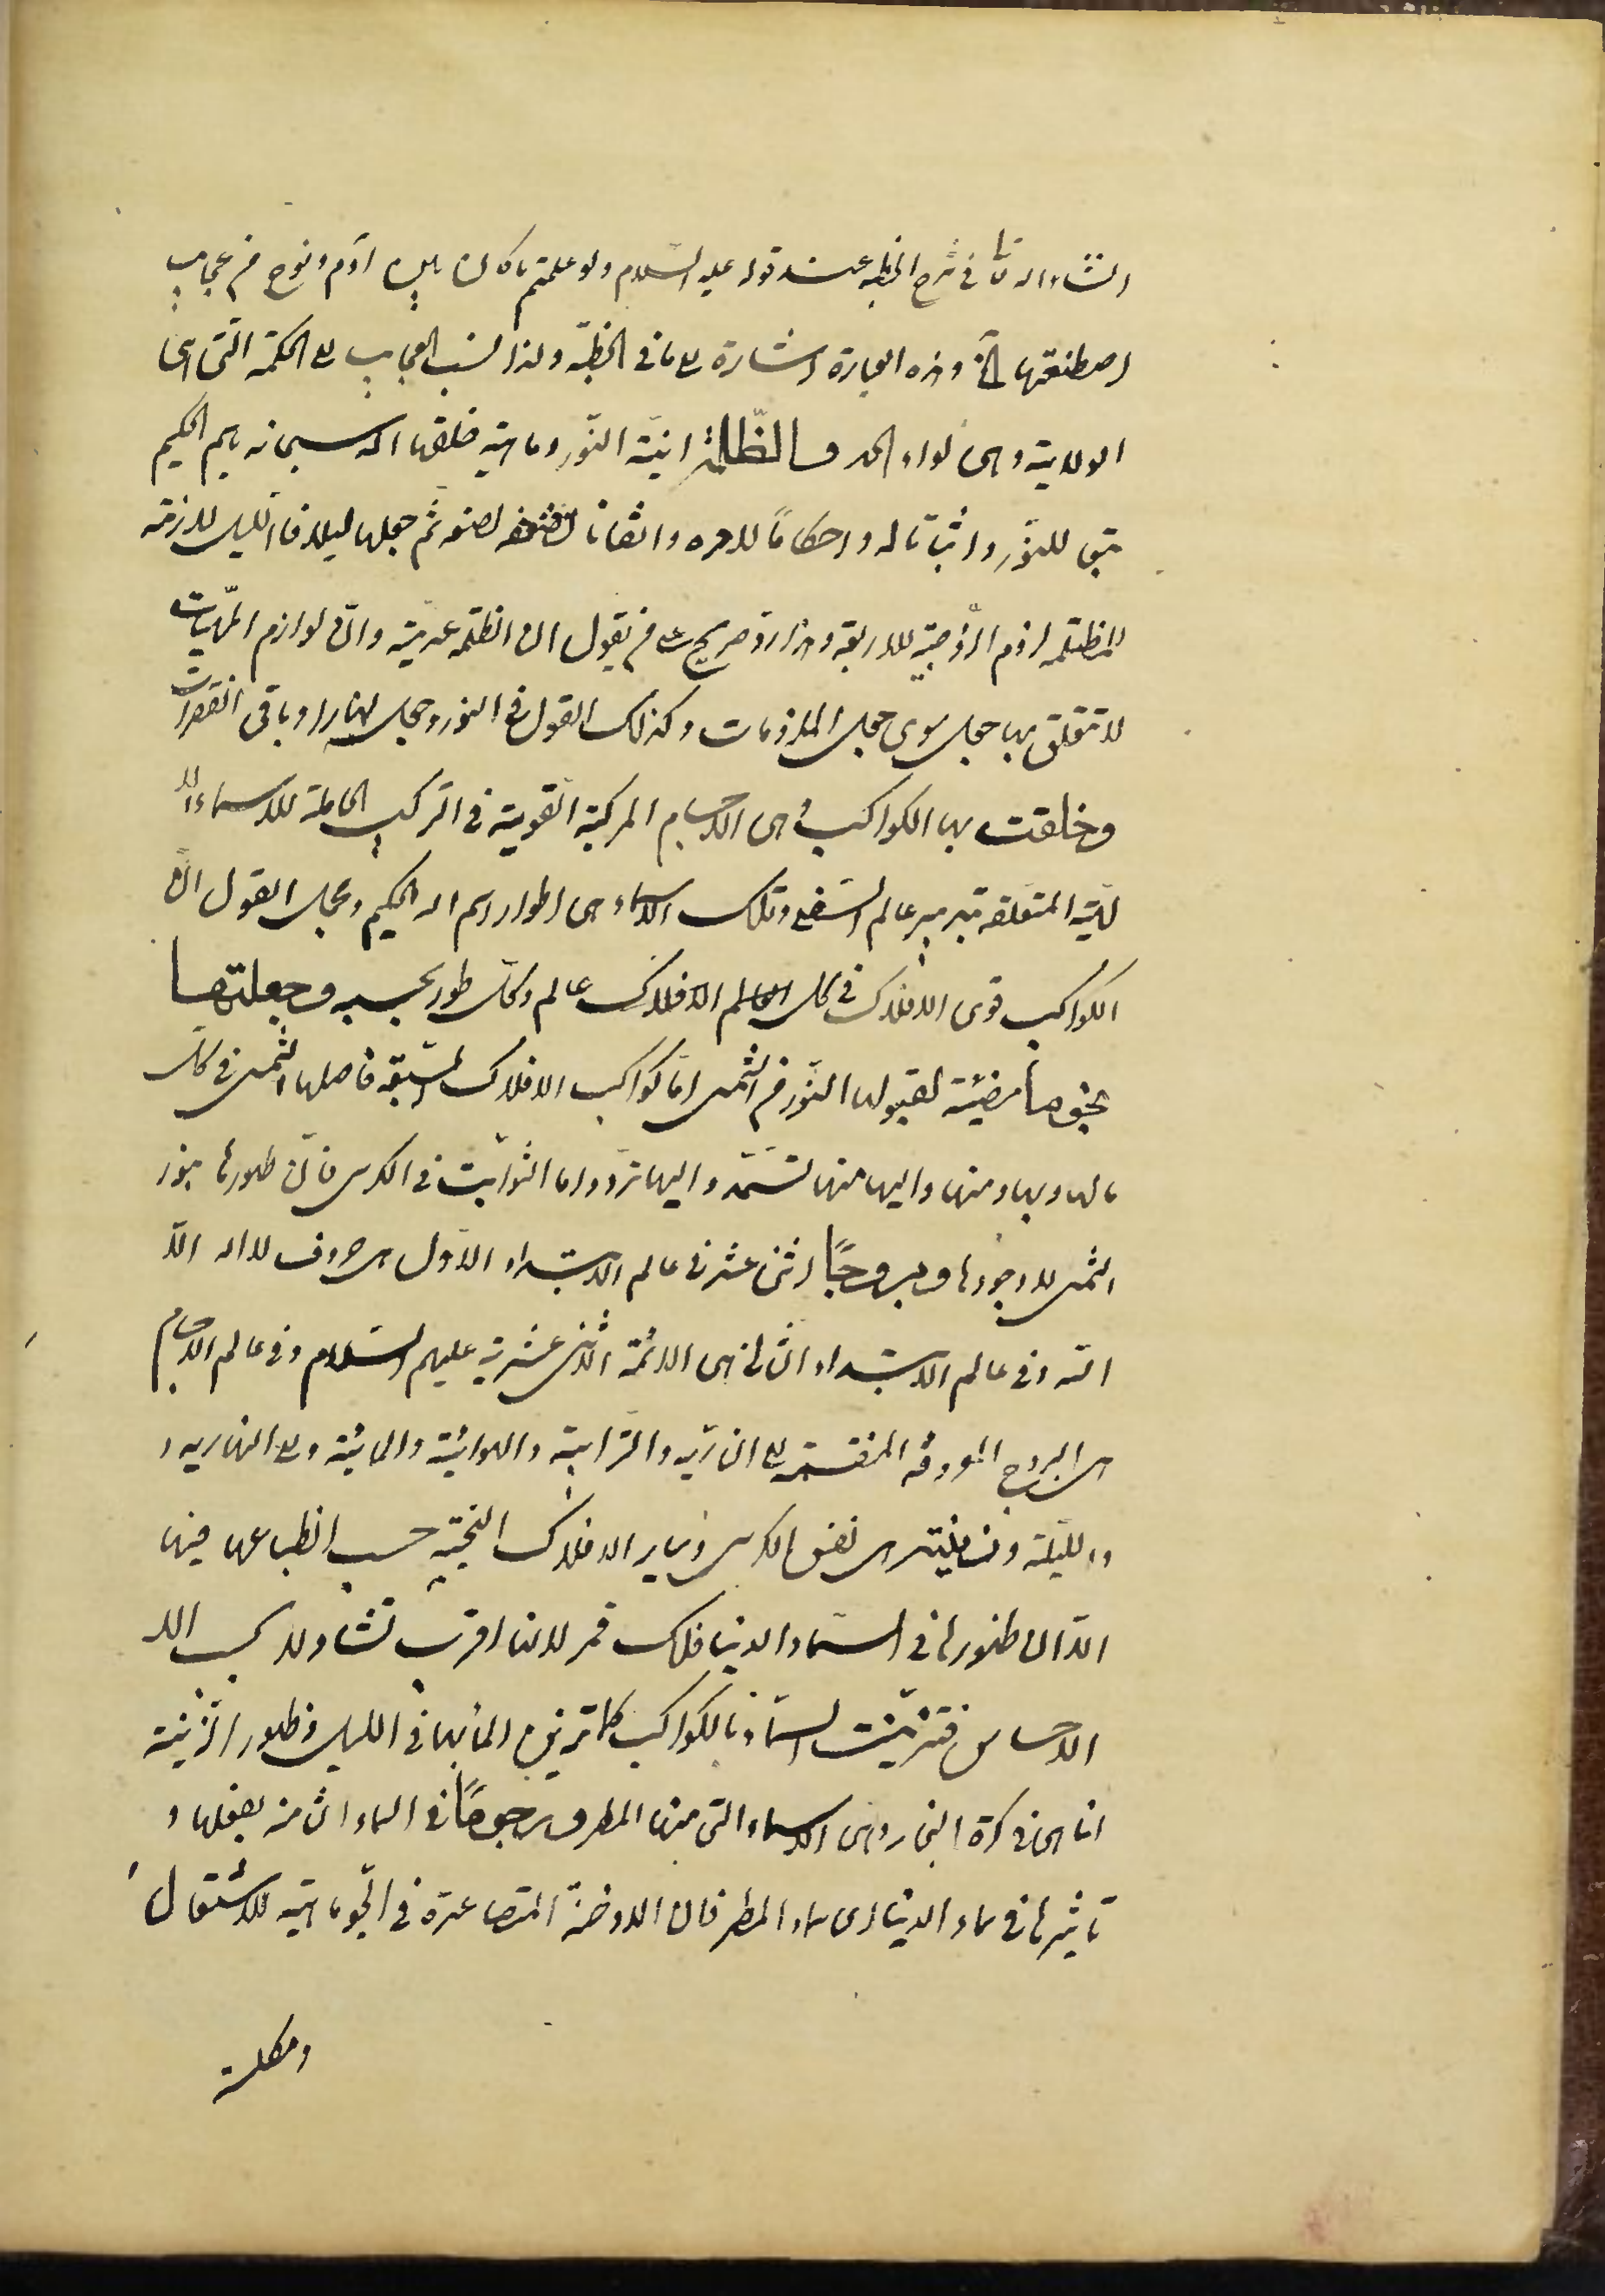 انشاء الله تعا في شرح الخطبة عند قوله عليه السّلام ولو علمتم ما كان بين آدم ونوح من عجايب
اصطنعتها الخ وهذه العبارة اشارة الى ما في الخطبة ولذا نسب العجايب الى الحكمة التى هى
الولاية وهى لواء الحمد والظّلمة انيّة النّور وماهيته خلقها الله سبحانه باسم الحكيم
للنّور واثباتا له واحكاماً لامره واتقانا لصنعه ثم جعلها ليلا فانّ الليل لازمة
للظلمة لزوم الزّوجيّة للاربعة وهذا ردّ صريح على من يقول ان الظلمة عدميّة وانّ لوازم المهيّات
لا تتعلق بها جعل سوى جعل الملزومات وكذلك القول في النور وجعله نهارا وباقى الفقرات
وخلقت بها الكواكب هى الاجسام المركبة القوية في التركيب الحاملة للاسماء الا
لهيّة المتعلقة بتدبير عالم السّفلى وتلك الاسماء هى اطوار اسم الله الحكيم ومجمل القول انّ
الكواكب قوى الافلاك في كل عالم الافلاك عالم وكل طور بحسبه وجعلتها
نجوما مضيئة لقبولها النّور من الشّمس امّا كواكب الافلاك السّبعة فاصلها الشّمس في كل
مالها وبها ومنها واليها منها تستمدّ واليها تردّ واما الثوابت في الكرسى فانّ ظهورها بنور
الشمس لا وجودها وبروجًا اثنى عشر في عالم الابتداء الاوّل هى حروف لا اله الّا
الله وفي عالم الابتداء الثانى هى الائمة الاثنى عشرية عليهم السّلام وفي عالم الاجسام
هى البروج المعروفة المنقسمة الى الناريّة والترابيّة والهوائيّة والمائيّة والى النهارية و
والليليّة هى نفس الكرسى وساير الافلاك التحتيّة حسب انطباعها فيها
الّا ان ظهورها في السّماء الدنيا فلك قمر لانها اقرب بحسب الا
الاحساس فتزيّنت السّماء بالكواكب كما ترىٰ في الليل وظهور الزّينة
انما هى في كرة البخار وهى السماء التى منها المطر ورجومًا في السماء الثامنة بفعلها و
تاثيرها في سماء الدنيا اى سماء المطر فان الادخنة المتصاعدة في الجّو ماهيّة للاشتعال
ومكلسة